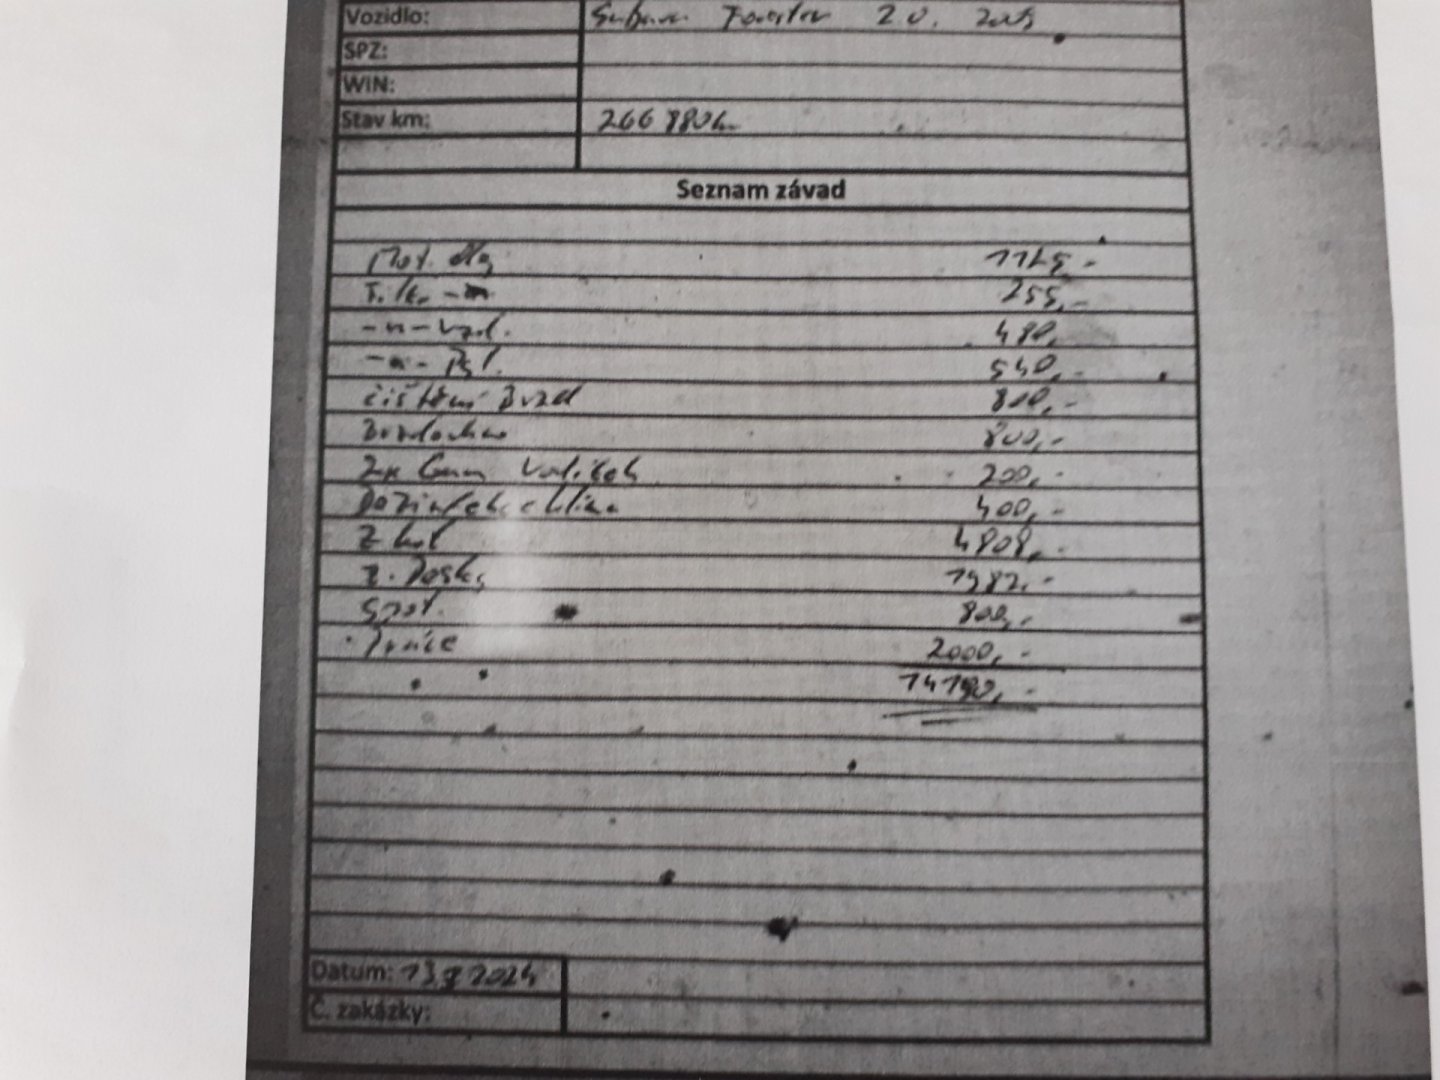 Vozidlo: Subaru Forester 2.0. 2005
SPZ:
WIN:
Stav km: 266 880 km
Seznam závad
Mot. olej 1125,-
F. 255,-
-n- vzd. 480,-
-n- Pal. 540,-
čištění Brzd 800,-
800,-
2x Gum Valiček 200,-
Dezinfekce klima 400,-
Z kot 4808,-
Z. Desky 1982,-
Spot. 800,-
Práce 2000,-
14190,-
Datum: 2024
Č. zakázky: